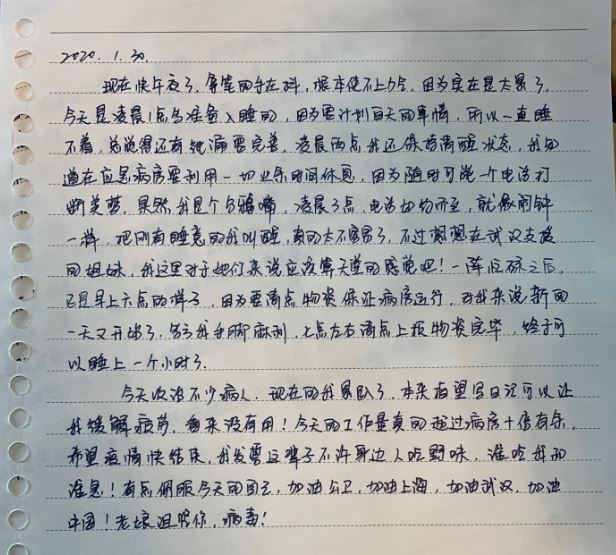 2020.1.30.
现在快午夜了,拿笔的手在抖,根本使不上力气,因为实在是太累了。
今天是凌晨1点多准备入睡的,因为要计划白天的事情,所以一直睡
不着,总觉得还有纰漏要完善,凌晨两点我还保持清醒状态,我知
道在应急病房要利用一切业余时间休息,因为随时可能一个电话打
断美梦,果然我是个乌鸦嘴,凌晨3点,电话如约而至,就像闹钟
一样,把刚有睡意的我叫醒,真的太不容易了,不过想想在武汉支援
的姐妹,我这里对于她们来说应该算天堂的感觉吧!一阵忙碌之后,
已是早上六点的样子,因为要清点物资保证病房运行,对我来说新的
一天又开始了,多亏我手脚麻利,七点左右清点上报物资完毕,终于可
以睡上一个小时了。
今天收治不少病人,现在的我累趴了,本来希望写日记可以让
我缓解疲劳,看来没有用!今天的工作量真的超过病房十倍有余,
希望疫情快结束,我发誓这辈子不许身边人吃野味,谁吃我和
谁急!有点佩服今天的自己,加油公卫,加油上海,加油武汉,加油
中国!老娘跟你,病毒!